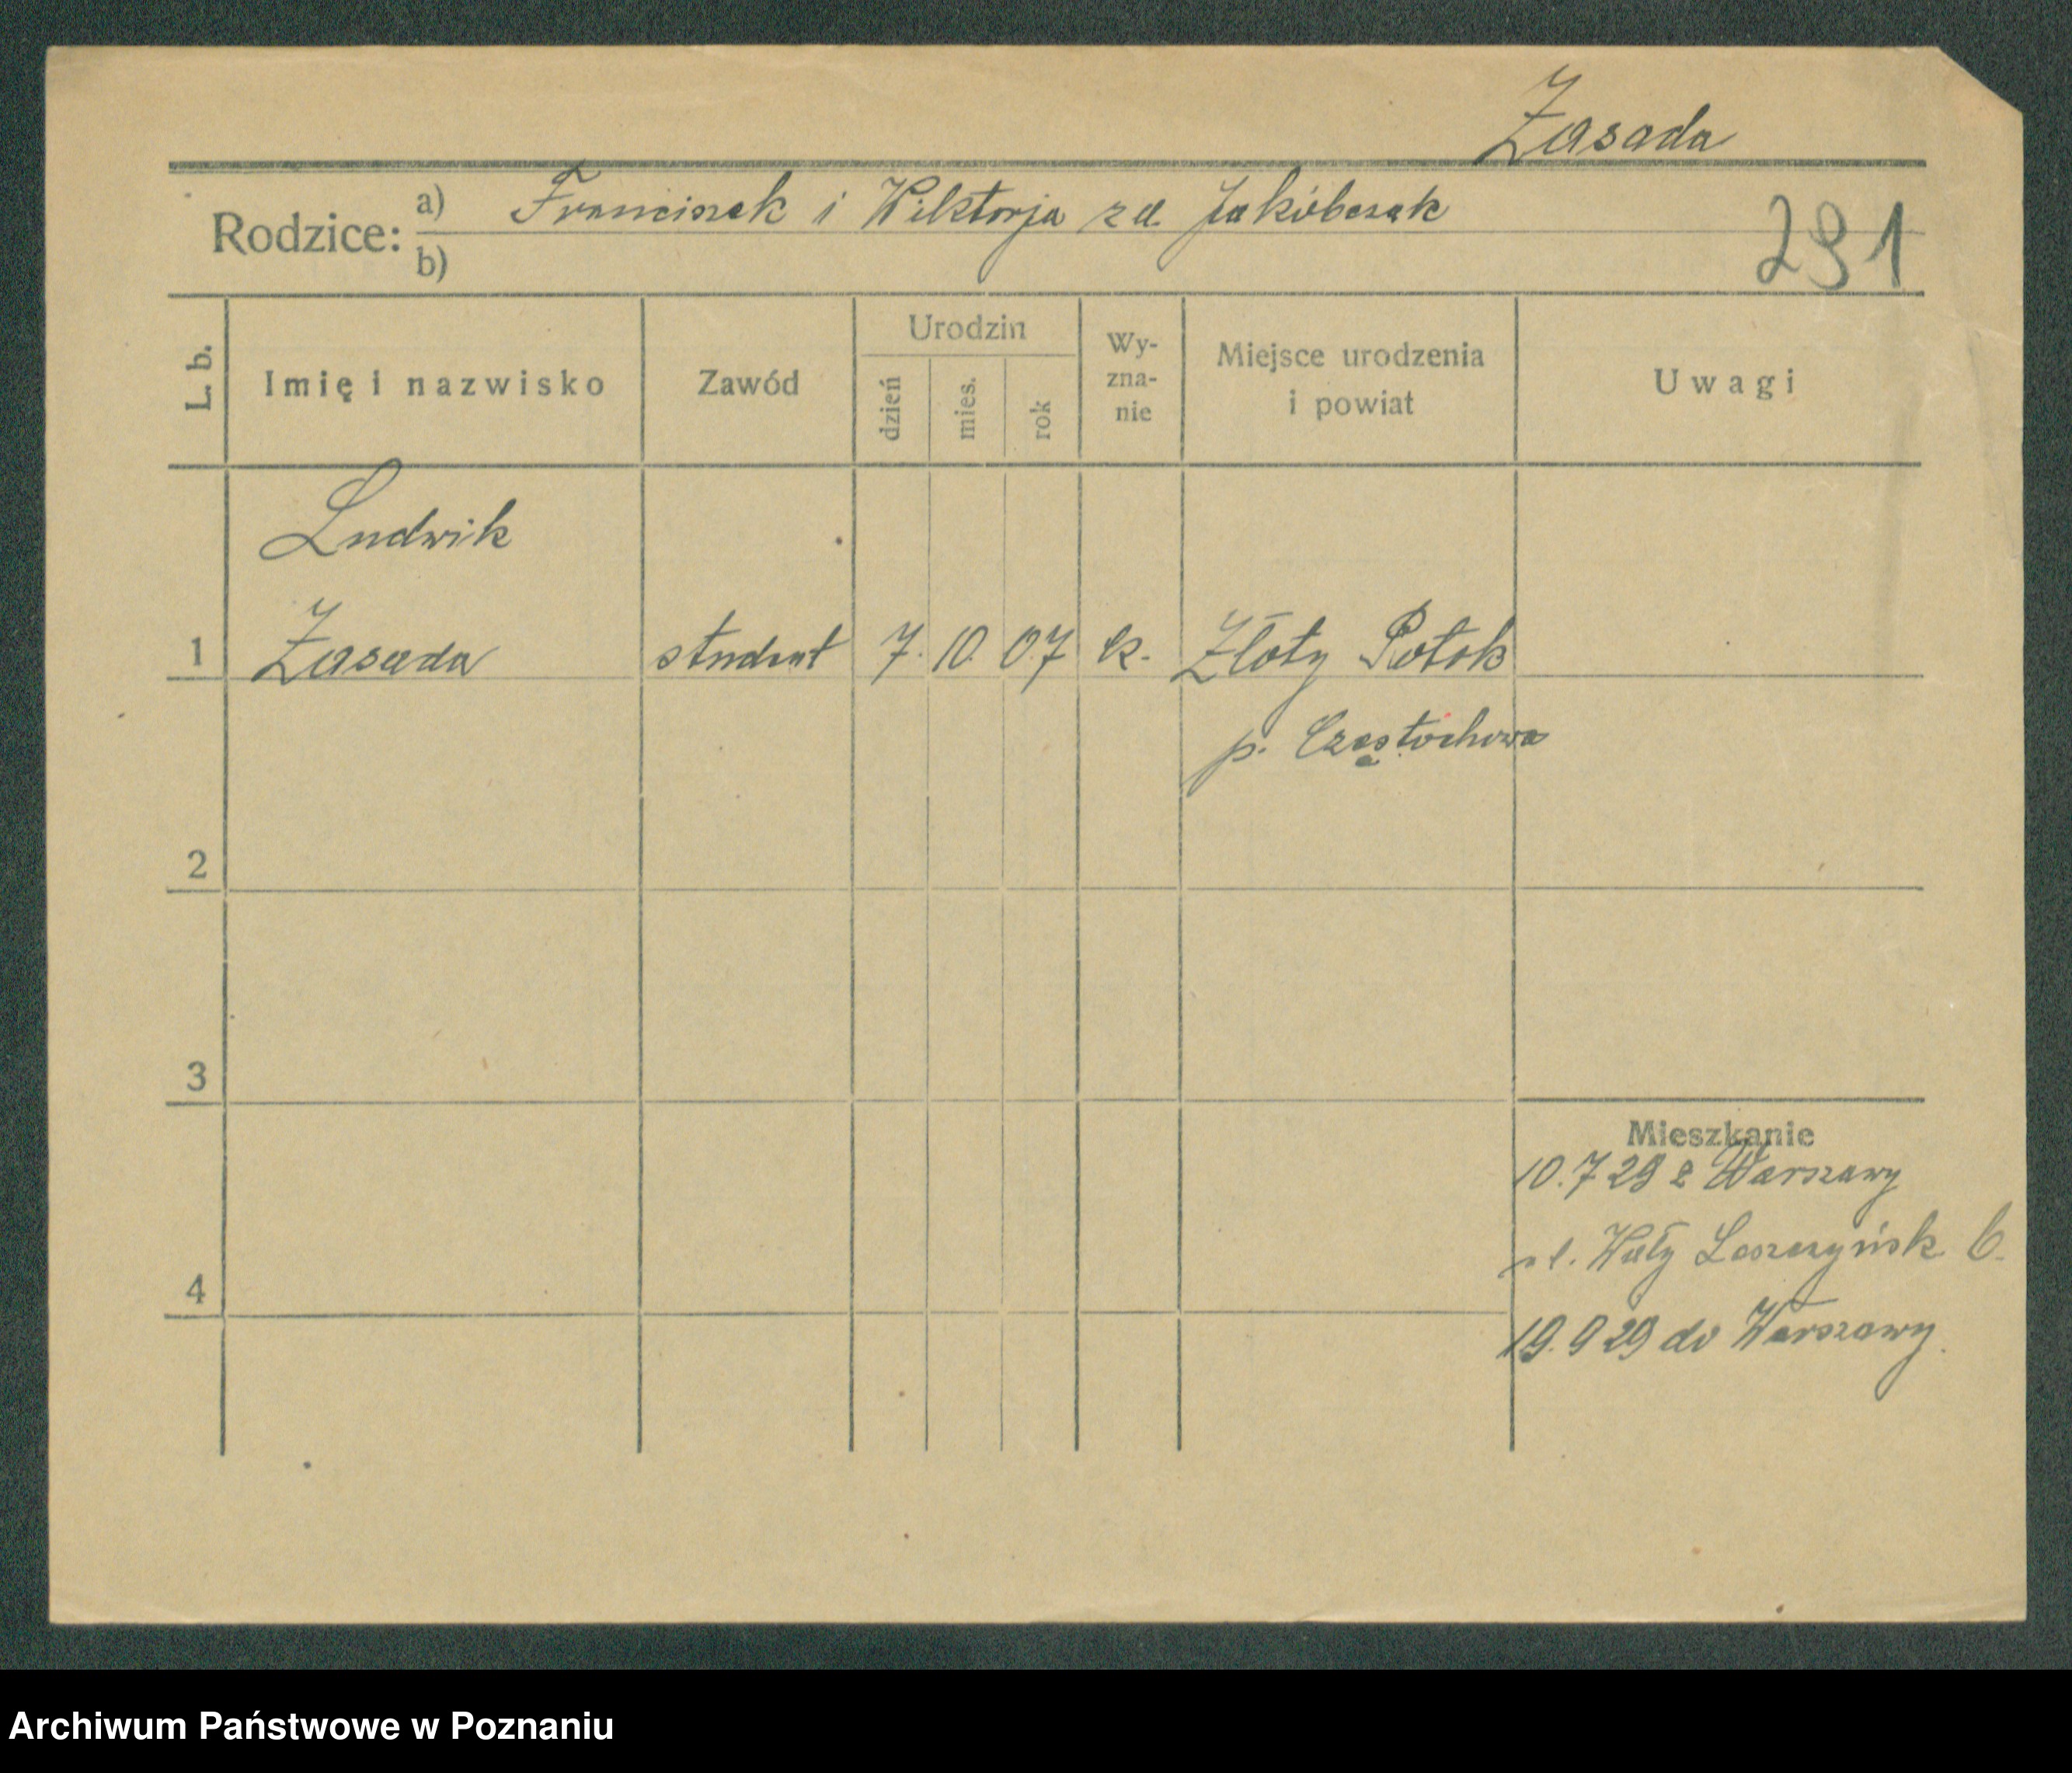 Zasada
Rodzice: a) Franciszek i Wiktorja zd. Jakóbczak
b)
291
L. b.
Imię i nazwisko
Zawód
Urodzin
dzień
mies.
rok
Wy-
zna-
nie
Miejsce urodzenia
i powiat
Uwagi
Ludwik
1 Zasada student 7. 10. 07 k. Złoty Potok
p. Częstochowa
2
3
Mieszkanie
10.7 29 z Warszawy
ul. Wały Leszczyńsk 6.
4
19.9 29 do Warszawy.
Archiwum Państwowe w Poznaniu